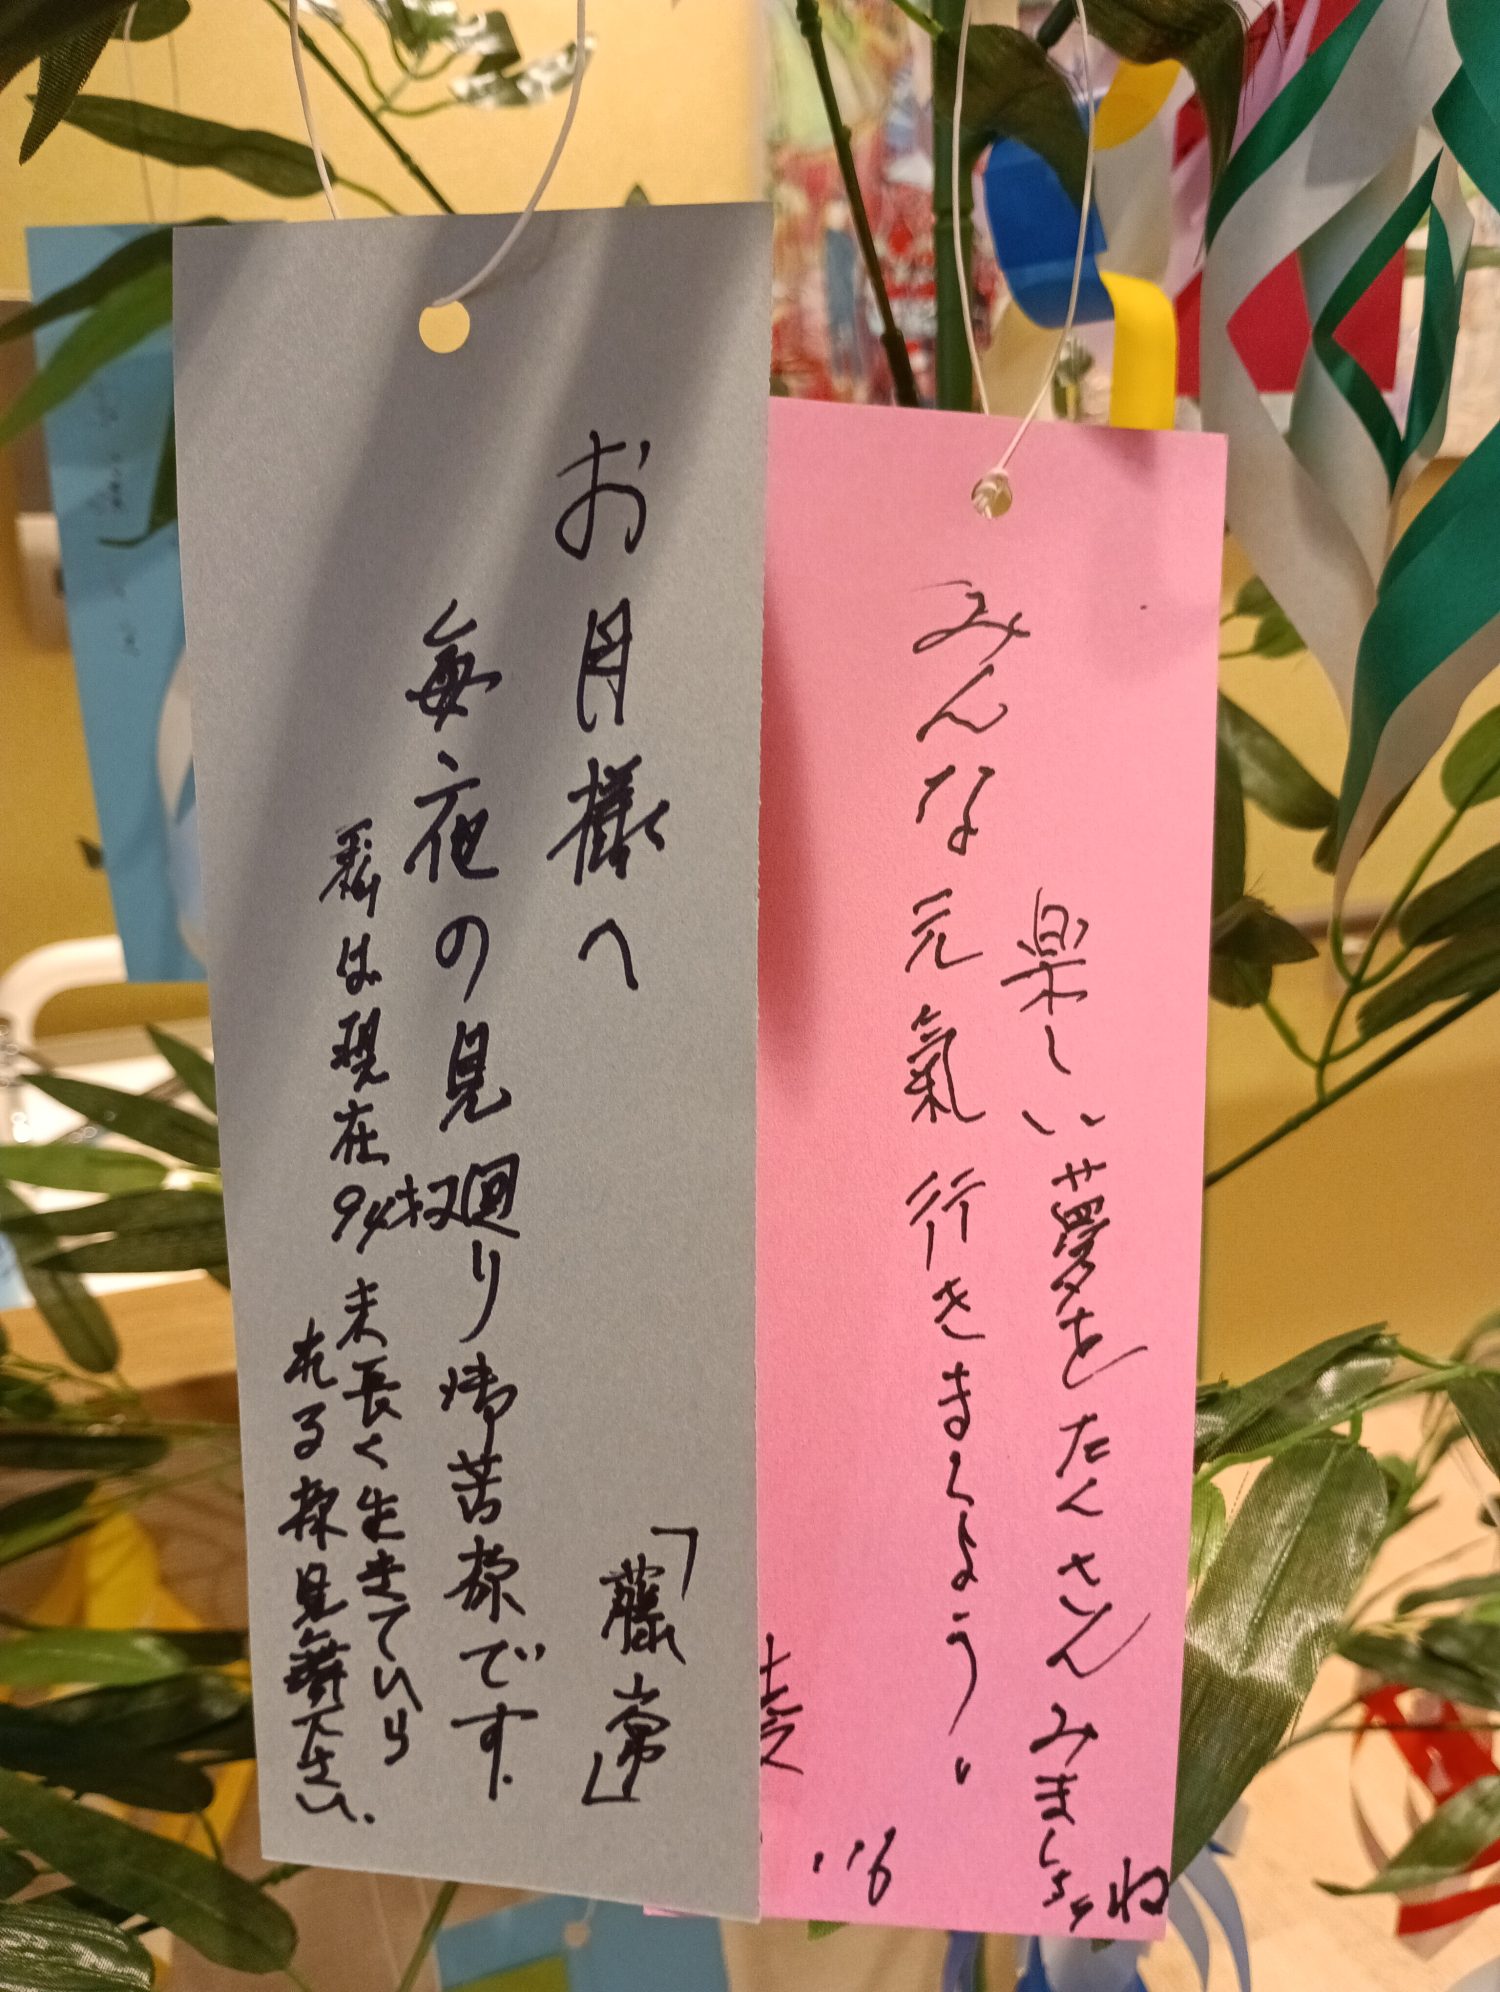 お月様へ
「藤常」
毎夜の見廻り御苦様です.
私は現在94才
末長く生きていら
れる様見舞下さい.
楽しい夢をたくさんみましょうね
みんな元氣行きましょう。